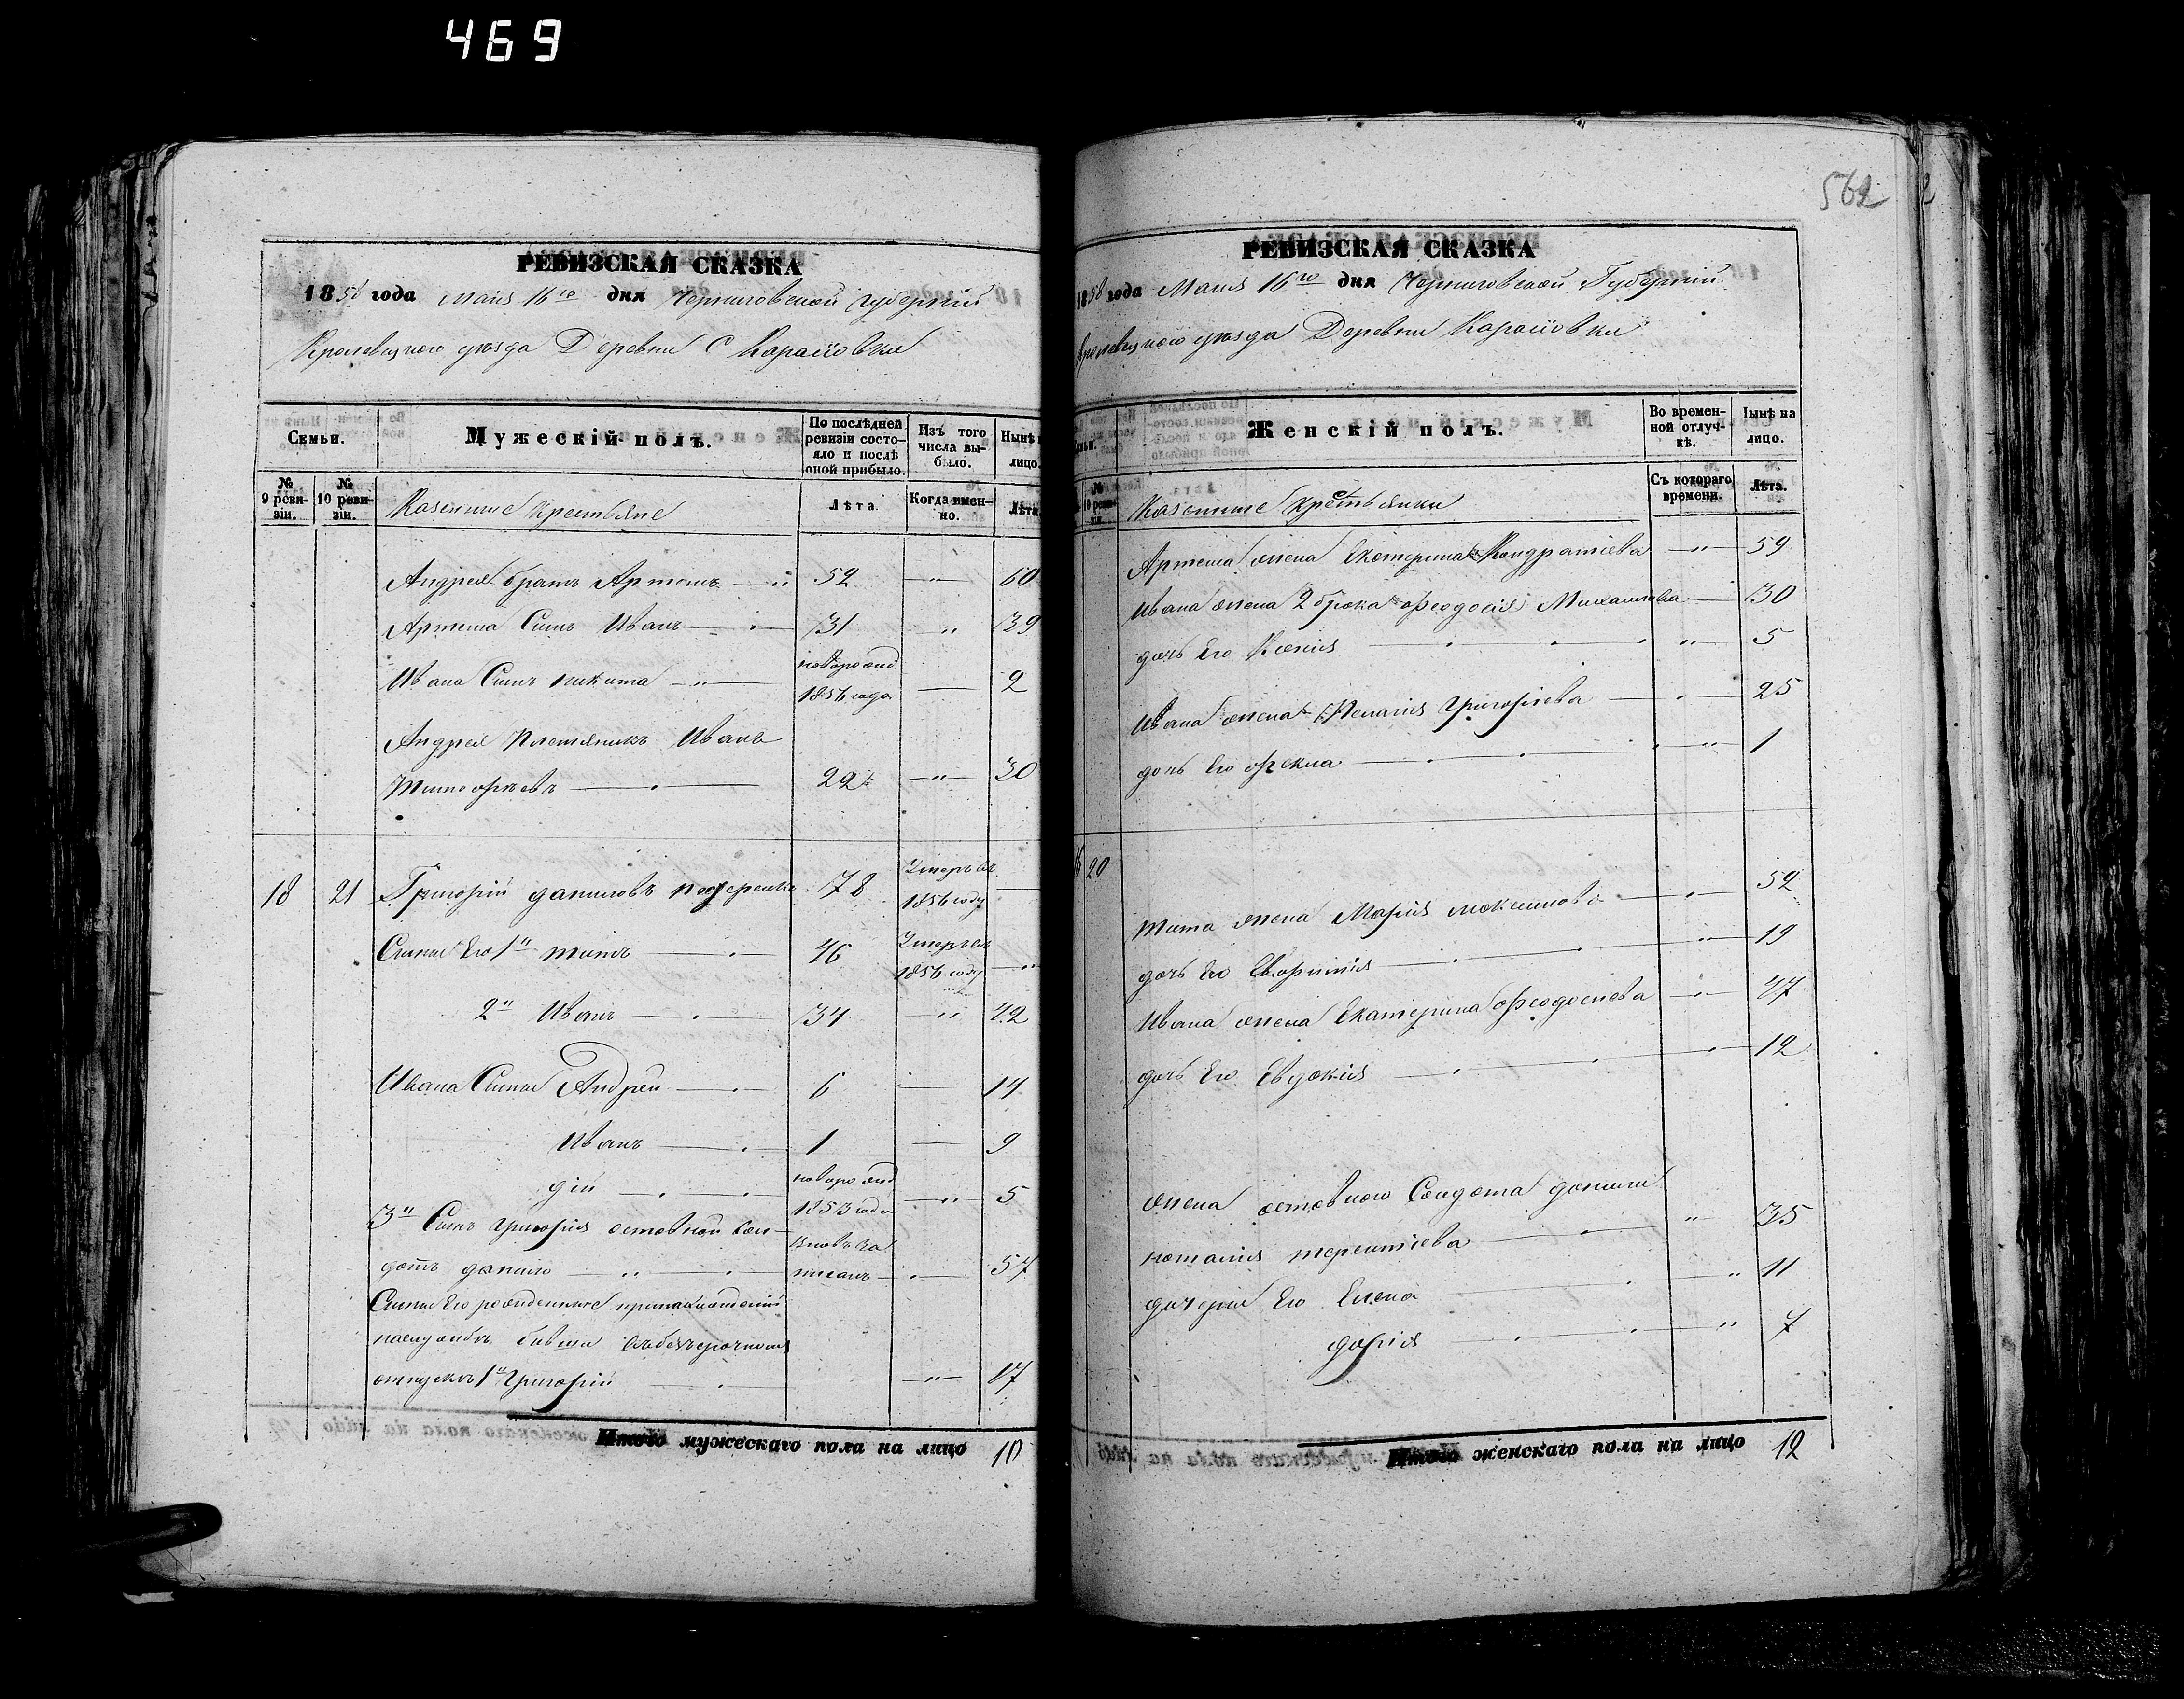 469
562
РЕВИЗСКАЯ СКАЗКА
1858 года Маия 16го дня Черниговской губернии
Кролевецкого уезда Деревни Карасовки
Семьи.
Мужескій полъ.
По послѣдней ревизіи состо-
яло и послѣ
оной прибыло.
Изъ того
числа вы-
было.
Нынѣ
лицо.
№
9 реви-
зіи.
№
10 реви-
зіи.
Казенные Крестьяне
Лѣта.
Когда имен-
но.
Лѣта
Андрея братъ Артемъ 52 60
Артема Сынъ Иванъ 31 39
Ивана Сынъ Никита новорожд 1856 года 2
Андрея Племяникъ Иванъ
Тимофѣевъ 22 30
18 21 Григорій Даниловъ 78 Умеръ въ 1856 году
Сыны Его 1й Титъ 46 Умеръ въ 1856 году
2й Иванъ 34 42
Ивана Сыны Андрей 6 14
Иванъ 1 9
новорожд 1853 года 5
3й Сынъ Григорія отставной Сол-
датъ Данило вновь записанъ 57
Сыны Его рожденные
отпуске 1й Григорій 17
Итого мужескаго пола на лицо 10
РЕВИЗСКАЯ СКАЗКА
1858 года Маия 16го дня Черниговской Губерніи
Кролевецкого уезда Деревни Карасовки
Женскій полъ.
Во времен-
ной отлуч-
кѣ.
Нынѣ на
лицо.
№
10 реви-
зіи.
Казенные Крестьянки
Съ котораго
времени.
Лѣта.
Артема жена Екатерина Кондратіева 59
Ивана жена 2 брака Феодосія Михайлова 30
дочь Его Ксенія 5
Ивана жена Пелагія Григоріева 25
дочь Его Фекла 1
20
Тита жена Марія Максимова 52
дочь Его Евфимія 19
Ивана жена Екатерина Феодосіева 47
дочь Его Евдокія 12
жена отставного Солдата Данилы
Наталия Терентіева 35
дочери Его Елена 11
Дарія 7
Итого женскаго пола на лицо 12